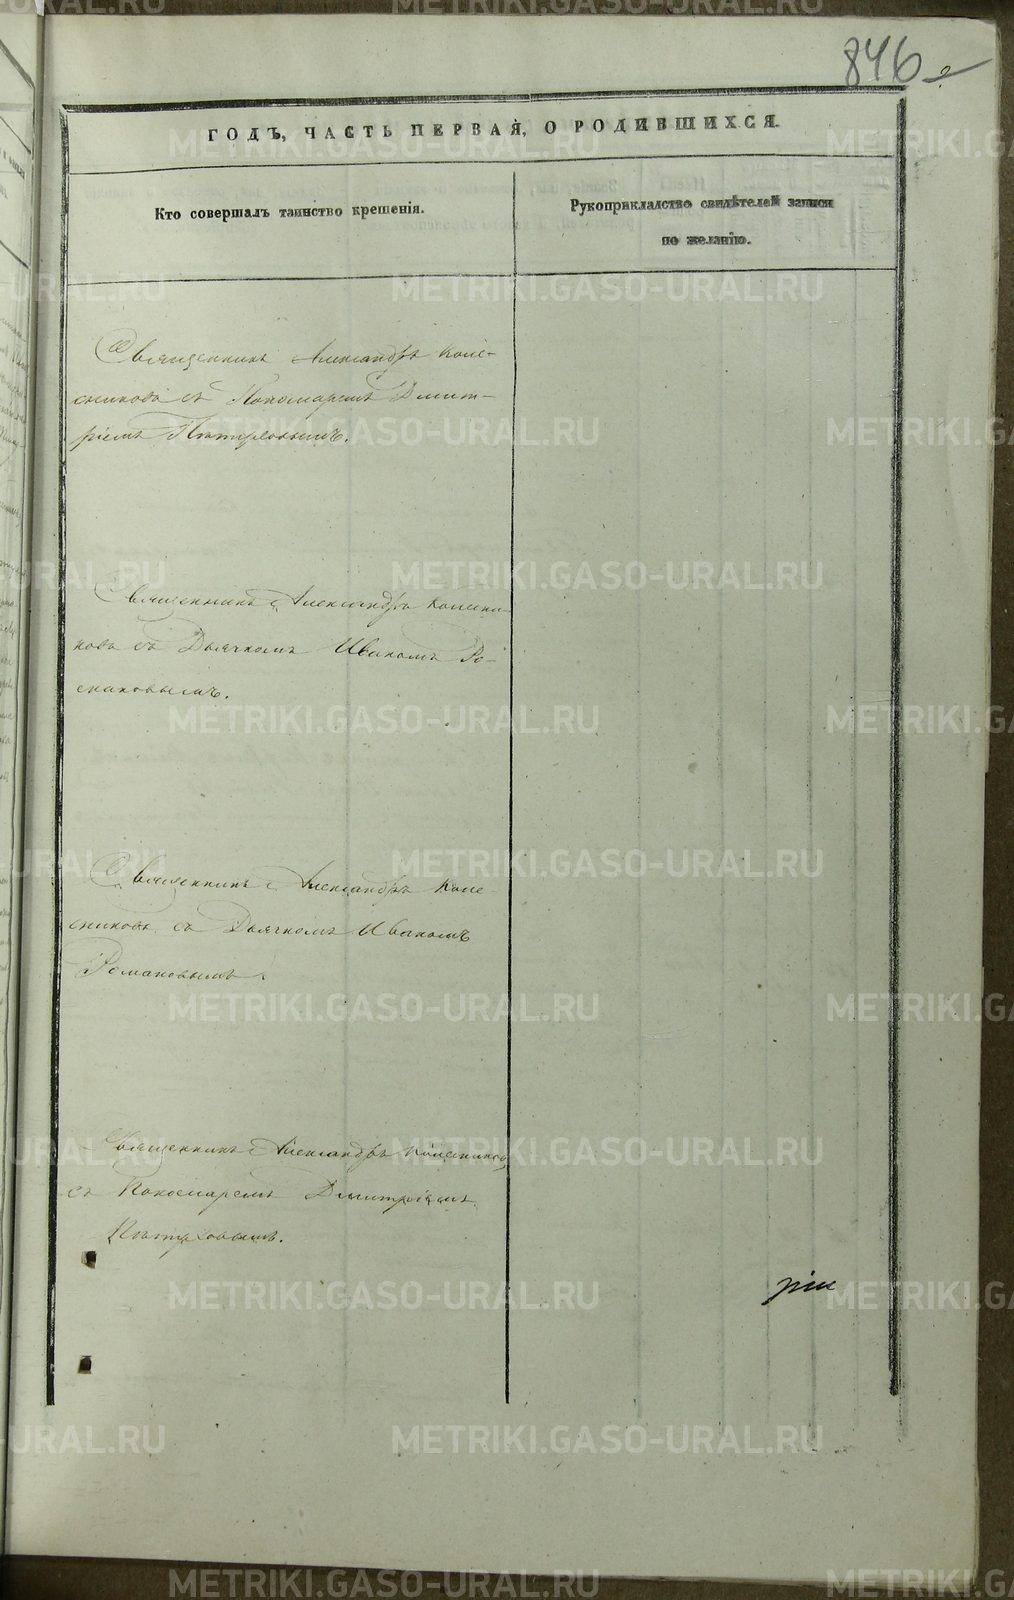 846
ГОДЪ, ЧАСТЬ ПЕРВАЯ, О РОДИВШИХСЯ.
Кто совершалъ таинство крещенія.
Рукоприкладство свидѣтелей записи
по желанію.
Священникъ Александръ Коле-
сниковъ съ Пономаремъ Дмит-
ріемъ
Священникъ Александръ Колесни-
ковъ съ Дьячкомъ Иваномъ Ро-
мановымъ.
Священникъ Александръ Коле-
сниковъ съ Дьячкомъ Иваномъ
Романовымъ.
Священникъ Александръ Колесниковъ
съ Пономаремъ Дмитріемъ
METRIKI.GASO-URAL.RU